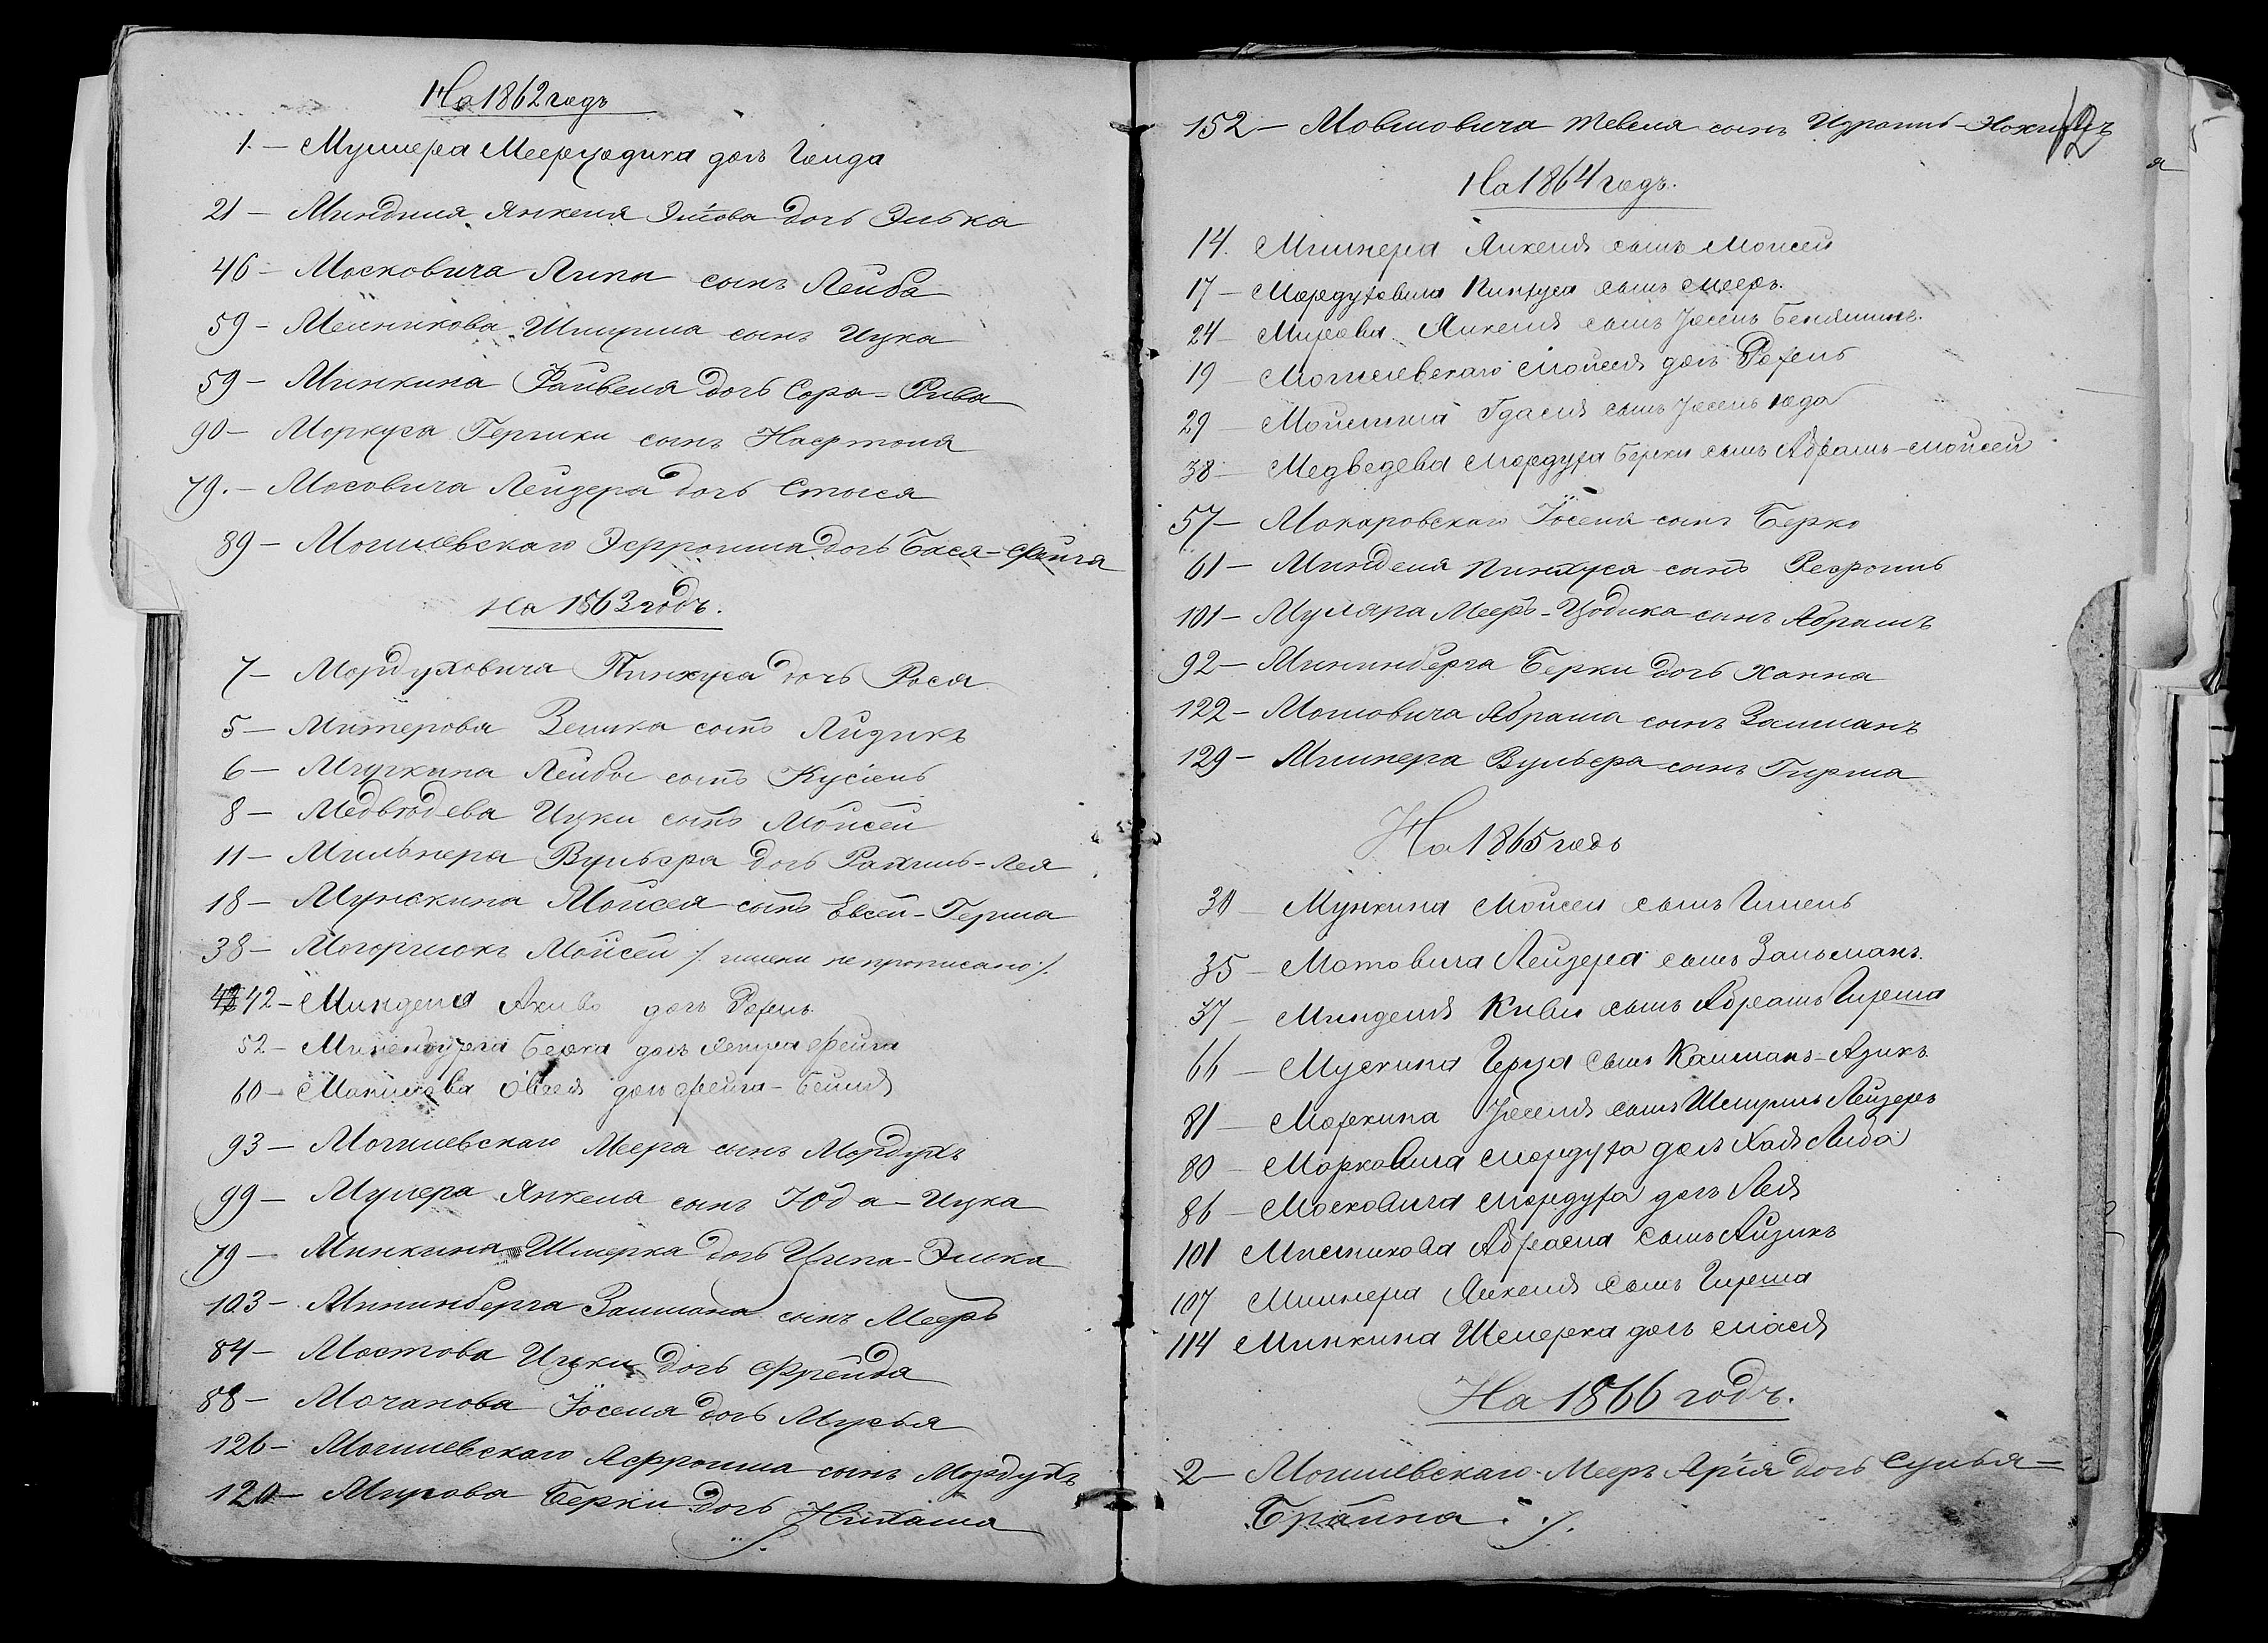 На 1862 годъ
1. — Мулера Меерцодика доч Генда
21 — Минделя Янкеля Эліова дочь Элька
46 — Московича Липы сынъ Лейба
59 — Мельникова Шмуила сынъ Ицка
59 — Минкина Файвеля дочь Сора-Рива
90 — Моркуса Гершки сынъ
79. — Мосовича Лейзера дочь Стыся
89 — Могилевскаго Эфроима дочь Бася-Фейга
На 1863 годъ.
7 — Мордуховича Пинхуса дочь Рося
5 — Митерова Зелика сынъ Айзикъ
6 — Лейбы сынъ Кусіель
8 — Медвѣдева Ицки сынъ Мойсей
11 — Мильнера Вульфа дочь Рахиль-Лея
18 — Мунскина Мойсея сынъ Евсей-Герша
38 — Мойсей /. имени не прописано ./
42 — Минделя Акива доч Рохель
52 — Берка доч Фейга
60 — Овсея доч Фейга-Бейля
93 — Могилевскаго Меера сынъ Мордухъ
99 — Мулера Янкеля сынъ Юда-Ицка
79 — Минкина Шмерка дочь Ципа-Элька
103 — Мининберга Залмана сынъ Мееръ
84 — Мостова Ицки дочь Фрейда
88 — Мочанова Іоселя дочь Мусья
126 — Могилевскаго Афроима сынъ Мордухъ
120 — Мирова Берки дочь Нихама
12
152 — Мовшовича Тевеля сынъ Изроиль-Нохимъ
На 1864 годъ.
14. Милнера Янкеля сынъ Моисей
17 — Мордуховича Пинхуса сынъ Мееръ.
24 — Мирова Янкеля сынъ Іосель Беніяминъ.
19 — Могилевскаго Мойсея доч Рохель
29 — Гдаля сынъ Іосель Юда
38 — Медведева Мордуха Берки сынъ Абрамъ-Мойсей
57 — Макаровскаго Іоселя сынъ Берко
61 — Минделя Пинхуса сынъ Рефоиль
101 — Муляра Мееръ-Цодика сынъ Абрамъ
92 — Мининберга Берки дочь Ханна
122 — Мотовича Абрама сынъ Залманъ
129 — Милнера Вульфа сынъ Гирша
На 1865 годъ
30 — Мункина Мойсея сынъ Гилель
35 — Мотовича Лейзера сынъ Зальманъ.
37 — Минделя Киви сынъ Абрамъ Гирша
66 — Мускина Герца сынъ Калманъ-Азикъ
81 — Моркина Іоселя сынъ Шмуилъ Лейзеръ
80 — Марковича Мордуха доч Хая Либа
86 — Московича Мордуха доч Лея
101 Абрама сынъ Айзикъ
107 Милнера Янкеля сынъ Гирша
114 Минкина Шмерка доч Мася
На 1866 годъ.
2 — Могилевскаго Мееръ Арія дочь Сулья=
Брайна ./.